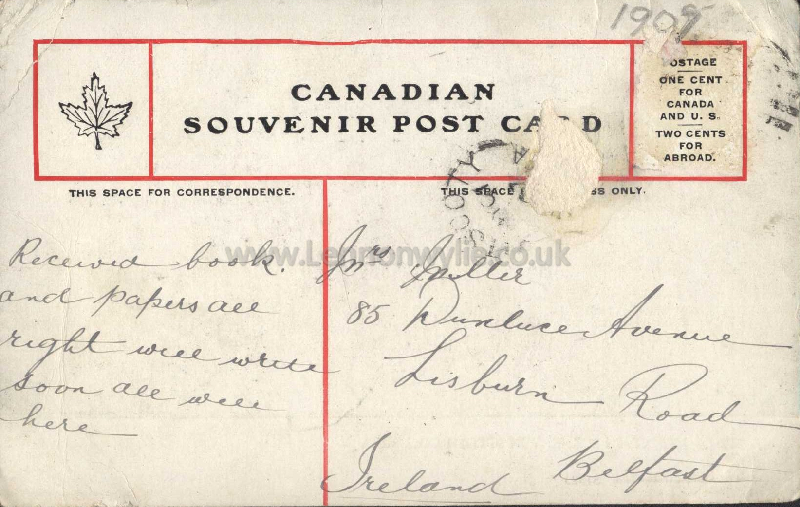 1909
CANADIAN
SOUVENIR POST CARD
OSTAGE
ONE CENT
FOR
CANADA
AND U. S.
TWO CENTS
FOR
ABROAD.
THIS SPACE FOR CORRESPONDENCE.
THIS SPACE SS ONLY.
www.Lennonwylie.co.uk
Received book.
and papers all
right will write
soon all well
here
Mrs Miller
85 Dunluce Avenue
Lisburn Road
Belfast
Ireland